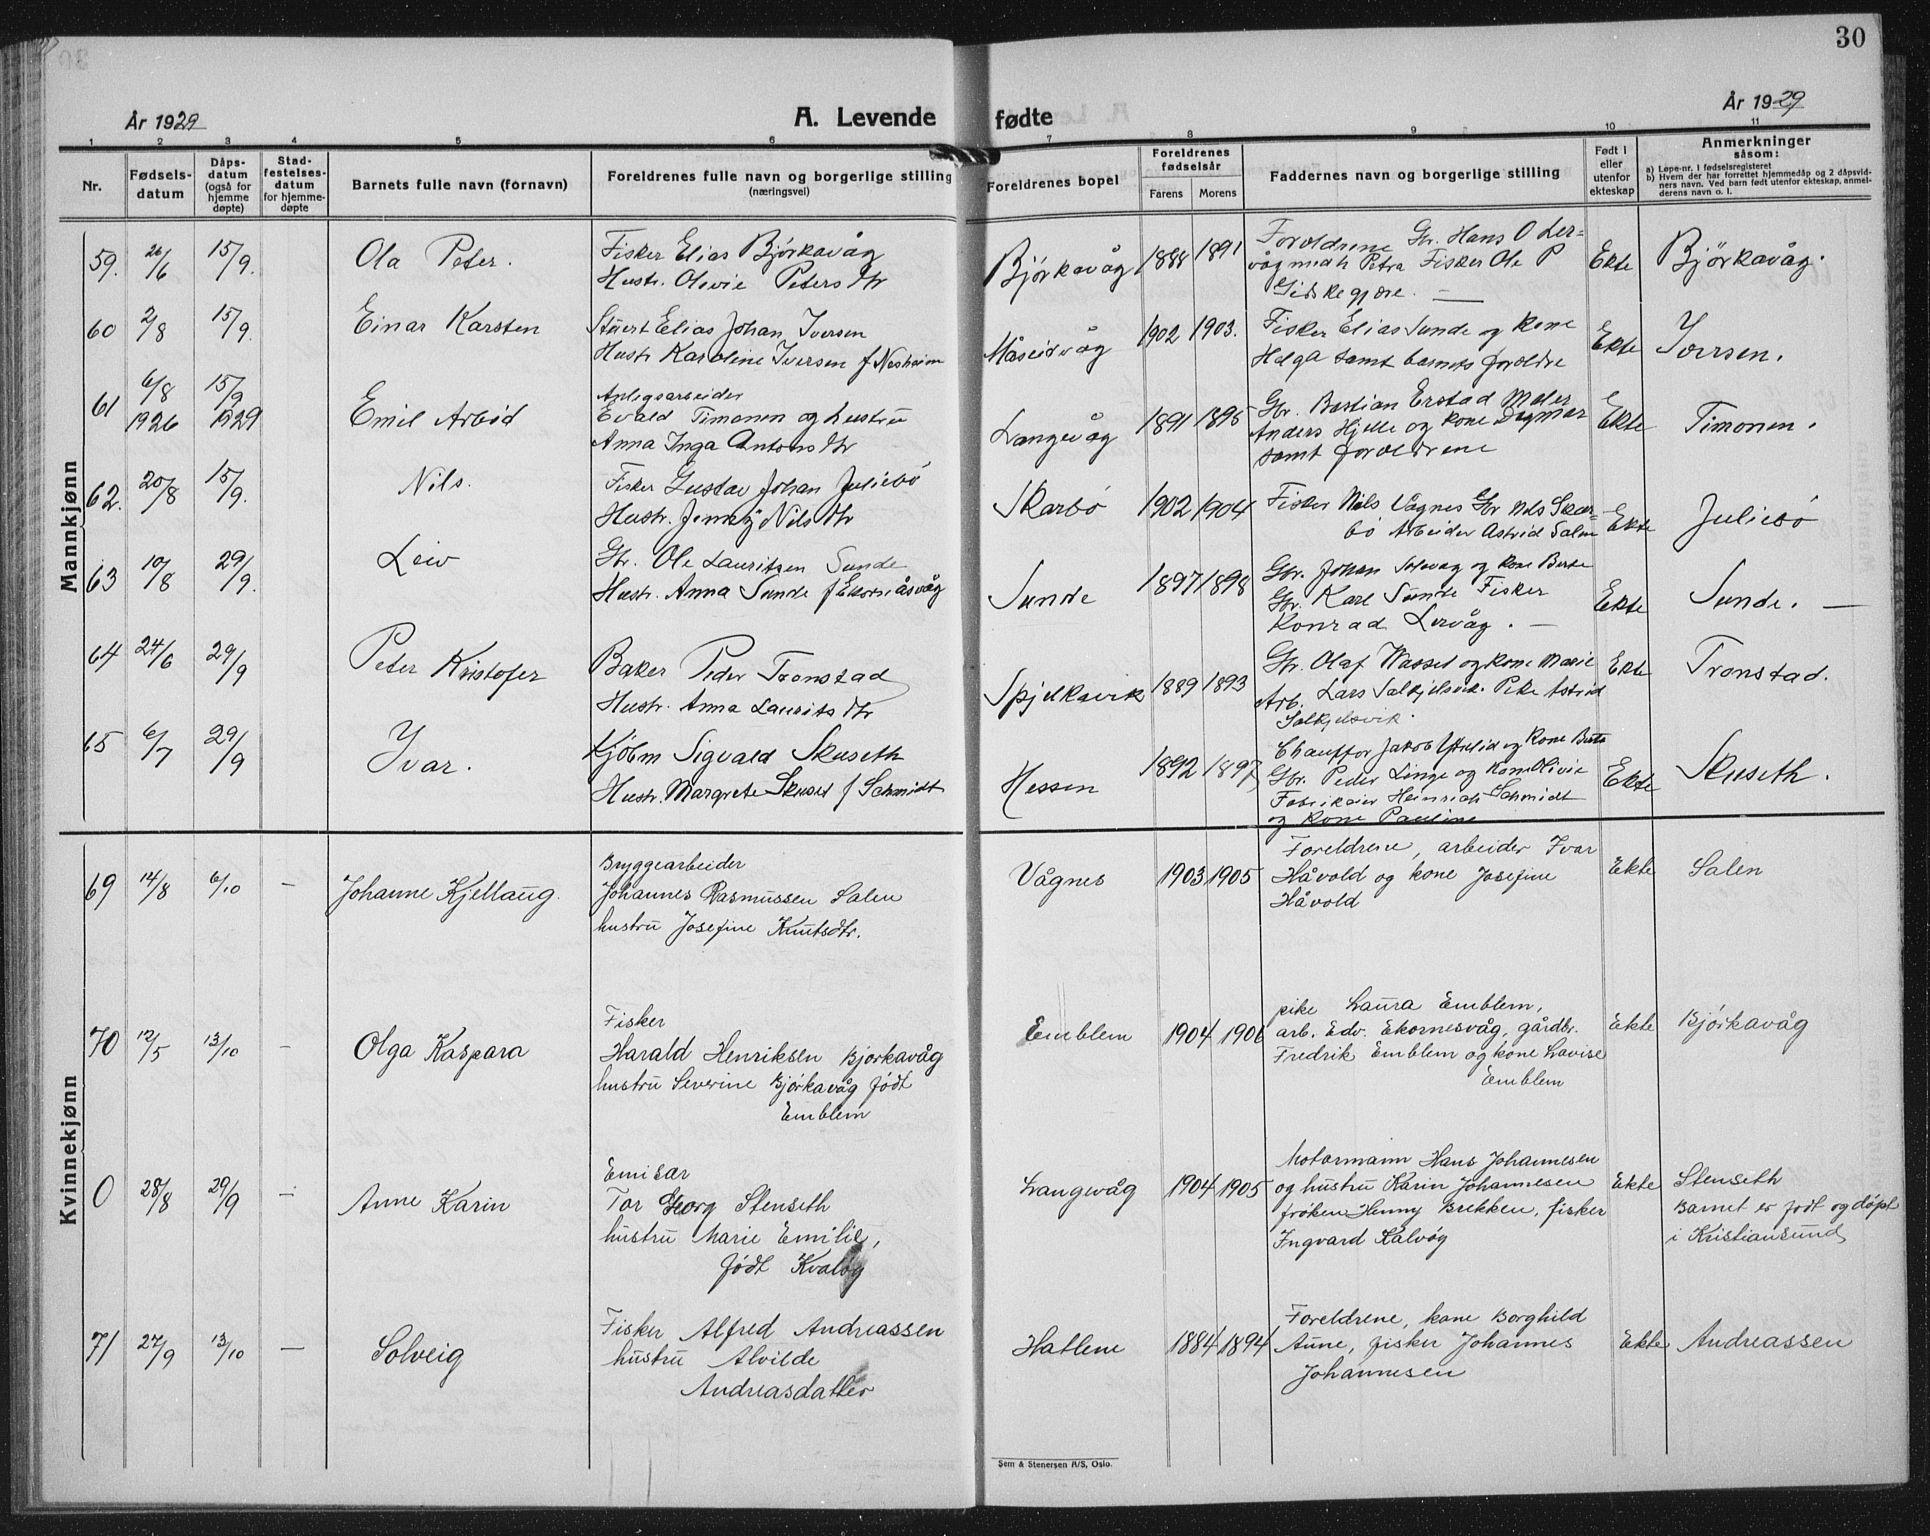 30
År 1929
A. Levende fødte
År 1929
1 2 3 4 5 6 7 8 9 10 11
Nr.
Fødsels-
datum
Dåps-
datum
(også for
hjemme
døpte)
Stad-
festelses-
datum
for hjemme-
døpte
Barnets fulle navn (fornavn)
Foreldrenes fulle navn og borgerlige stilling
(næringsvei)
Foreldrenes bopel
Foreldrenes
fødselsår
Farens Morens
Faddernes navn og borgerlige stilling
Født i
eller
utenfor
ekteskap
Anmerkninger
såsom:
a) Løpe-nr. i fødselsregisteret
b) Hvem der har forrettet hjemmedåp og 2 dåpsvid-
ners navn. Ved barn født utenfor ekteskap, anmel-
derens navn o. l.
Mannkjønn
59. 26/6 15/9. Ola Peter.
Fisker Elias Bjørkavåg
Hustr. Olivie Petersdtr
Bjørkavåg 1888 1891
Foreldrene Gbr. Hans O Ler-
våg Petra Fisker Ole P
Gidskegjære. —
Ekte Bjørkavåg.
60 2/8 15/9. Einar Karsten
Stuert Elias Johan Iversen
Hustr Karoline Iversen f Nesheim
Måseidvåg 1902 1903.
Fisker Elias Sunde og kone
Helga samt barnets foreldre
Ekte Iversen.
61 6/8 1926 15/9 1929 Emil Arbod
Anlegsarbeider
Evald Timonen og hustru
Anna Inga Antonsdtr
Langevåg 1891 1895
Gbr. Bastian Erstad Maler
Anders Hjelle og kone Dagmar
samt foreldrene
Ekte Timonen.
62. 20/8 15/9. Nils.
Fisker Gustav Johan Juliebø
Hustr. Jenny Nilsdtr
Skarbø 1902 1904
Fisker Nils Vagnes Gbr Nils Skar-
bø Arbeider Astrid Salen
Ekte Juliebø
63 10/8 29/9. Leiv
Gbr. Ole Lauritsen Sunde
Hustr. Anna Sunde f Ekornåsvåg
Sunde 1897 1898
Gbr. Johan Solevåg og kone Berte
Gbr. Karl Sunde Fisker
Konrad Lervåg. —
Ekte Sunde. —
64 24/6 29/9 Peter Kristofer
Baker Peder Tronstad
Hustr. Anna Lauritsdtr
Spjelkavik 1889 1893
Gbr. Olaf Wasset og kone Marie
Arb. Lars Salkjelsvik. Pike Astrid
Salkjelsvik.
Ekte Tronstad.
65 6/7 29/9 Ivar.
Kjøbm Sigvald Skuseth
Hustr. Margrete Skuset f Schmidt
Hessen 1892 1897
Chauffør Jakob og kone Berte
Gbr. Peder Linge og kone Olivie
Fabrikeier Heinrich Schmidt
og kone Pauline
Ekte Skuseth.
Kvinnekjønn
69 14/8 6/10 — Johanne Kjellaug.
Bryggearbeider
Johannes Rasmussen Salen
hustru Josefine Knutsdtr.
Vågnes 1903 1905
Foreldrene, arbeider Ivar
Håvold og kone Josefine
Håvold
Ekte Salen
70 12/5 13/10 — Olga Kaspara
Fisker
Harald Henriksen Bjørkavåg
hustru Severine Bjørkavåg født
Emblem
Emblem 1904 1906
pike Laura Emblem,
arb. Edv. Ekornesvåg, gårdbr.
Fredrik Emblem og kone Lavise
Emblem
Ekte Bjørkavåg
0 28/8 29/9 — Anne Karin
Emisær
Tor Georg Stenseth
hustru Marie Emilie,
født Kvaløy
Langevåg 1904 1905
Motormann Hans Johannesen
og hustru Karin Johannesen
frøken Henny Brekken, fisker
Ingvard Kalvøy
Ekte Stenseth
Barnet er født og døpt
i Kristiansund
71 27/9 13/10 — Solveig
Fisker Alfred Andreassen
hustru Alvilde
Andreasdatter
Hatlene 1884 1894
Foreldrene, kone Borghild
Aune, fisker Johannes
Johannesen
Ekte Andreassen
Sem & Stenersen A/S, Oslo.